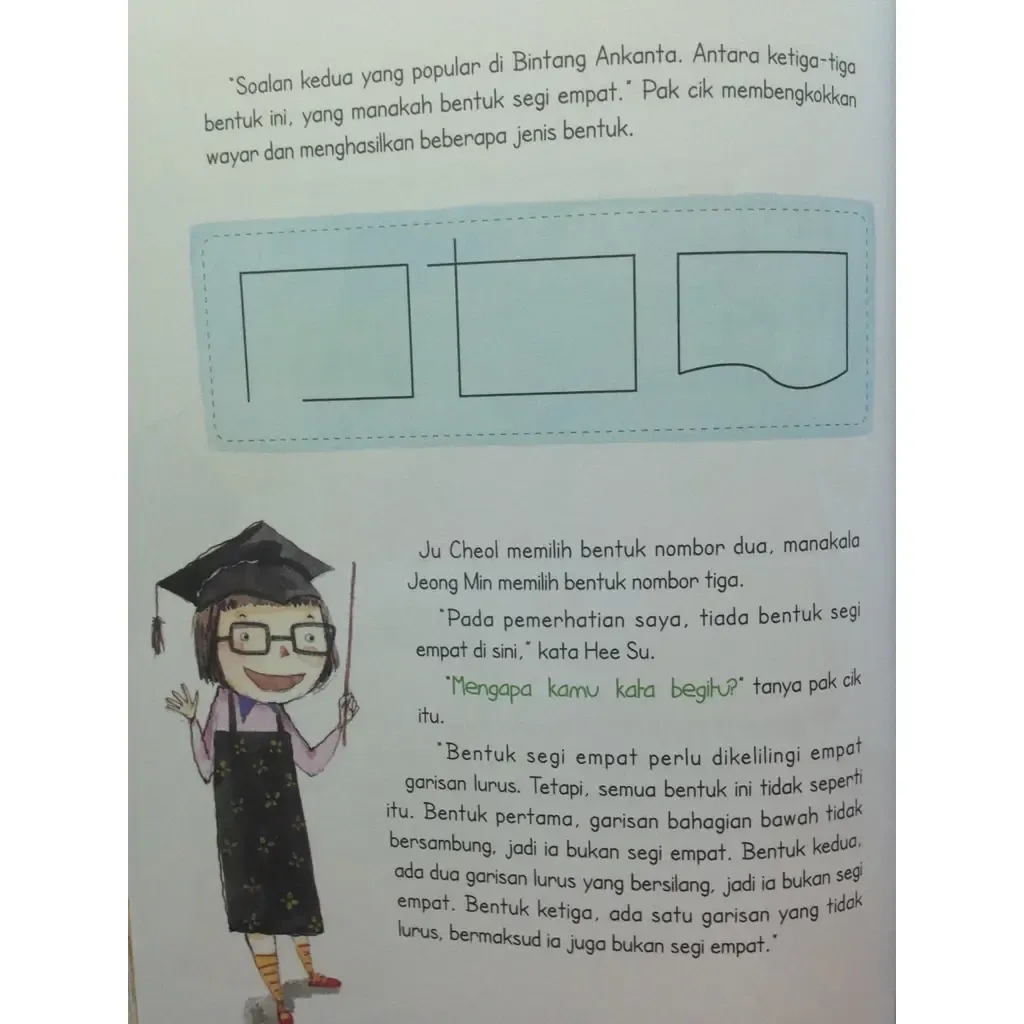 "Soalan kedua yang popular di Bintang Ankanta. Antara ketiga-tiga
bentuk ini, yang manakah bentuk segi empat." Pak cik membengkokkan
wayar dan menghasilkan beberapa jenis bentuk.
Ju Cheol memilih bentuk nombor dua, manakala
Jeong Min memilih bentuk nombor tiga.
"Pada pemerhatian saya, tiada bentuk segi
empat di sini," kata Hee Su.
"Mengapa kamu kata begitu?" tanya pak cik
itu.
"Bentuk segi empat perlu dikelilingi empat
garisan lurus. Tetapi, semua bentuk ini tidak seperti
itu. Bentuk pertama, garisan bahagian bawah tidak
bersambung, jadi ia bukan segi empat. Bentuk kedua,
ada dua garisan lurus yang bersilang, jadi ia bukan segi
empat. Bentuk ketiga, ada satu garisan yang tidak
lurus, bermaksud ia juga bukan segi empat."